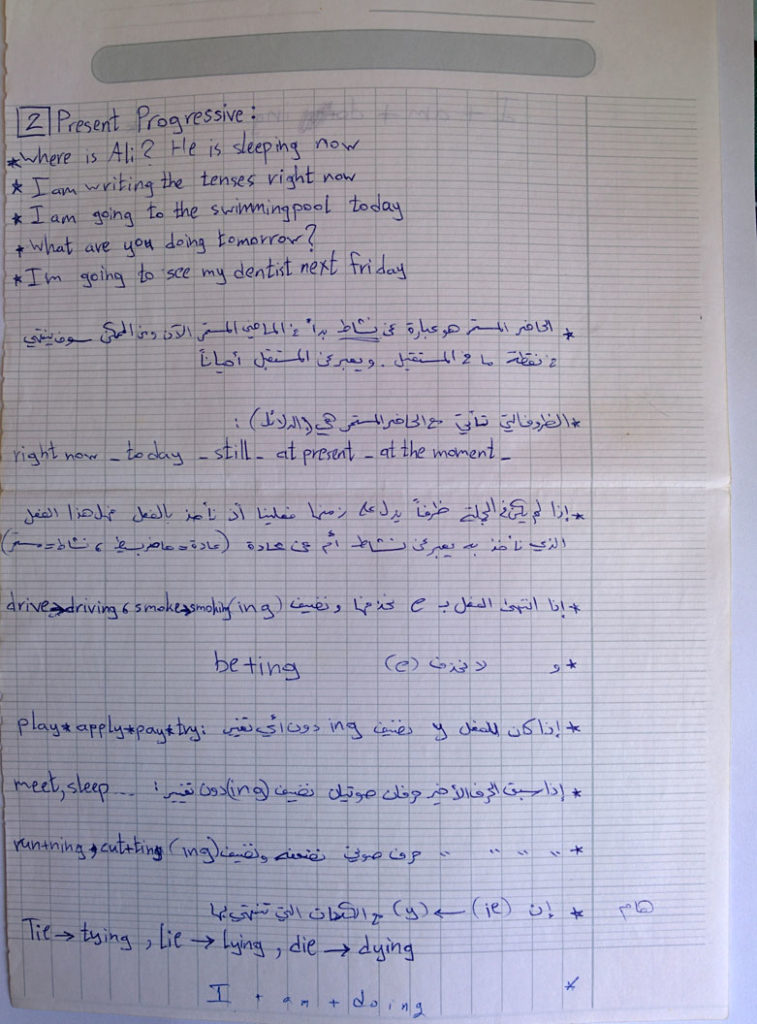 2 Present Progressive:
* Where is Ali? He is sleeping now
* I am writing the tenses right now
* I am going to the swimming pool today
* What are you doing tomorrow?
* Im going to see my dentist next friday
* الحاضر المستمر هو عبارة عن نشاط بدأ في الماضي المستمر الآن ومن الممكن سوف ينتهي
في نقطة ما في المستقبل . ويعبر عن المستقبل أحياناً
* الظروف التي تأتي مع الحاضر المستمر هي (الدلائل) :
right now _ today _ still _ at present _ at the moment _
* إذا لم يكن في الجملة ظرفاً يدل على زمنها فعلينا أن نأخذ بالفعل هل هذا الفعل
الذي نأخذ به يعبر عن نشاط أم عن عادة (عادة = حاضر بسيط ، نشاط = مستمر)
* إذا انتهى الفعل بـ e نحذفها ونضيف (ing) drive→driving ، smoke→smoking
* و لا نحذف (e) be+ing
* إذا كان للفعل y نضيف ing دون أي تغيير : play * apply * pay * try
* إذا سبق الحرف الأخير حرفان صوتيان نضيف (ing) دون تغيير : meet, sleep ...
* " " " " حرف صوتي نضعفه ونضيف (ing) run+ning , cut+ting
هام * إن (ie) ← (y) في الكلمات التي تنتهي بها
Tie → tying , Lie → Lying , die → dying
* I + am + doing